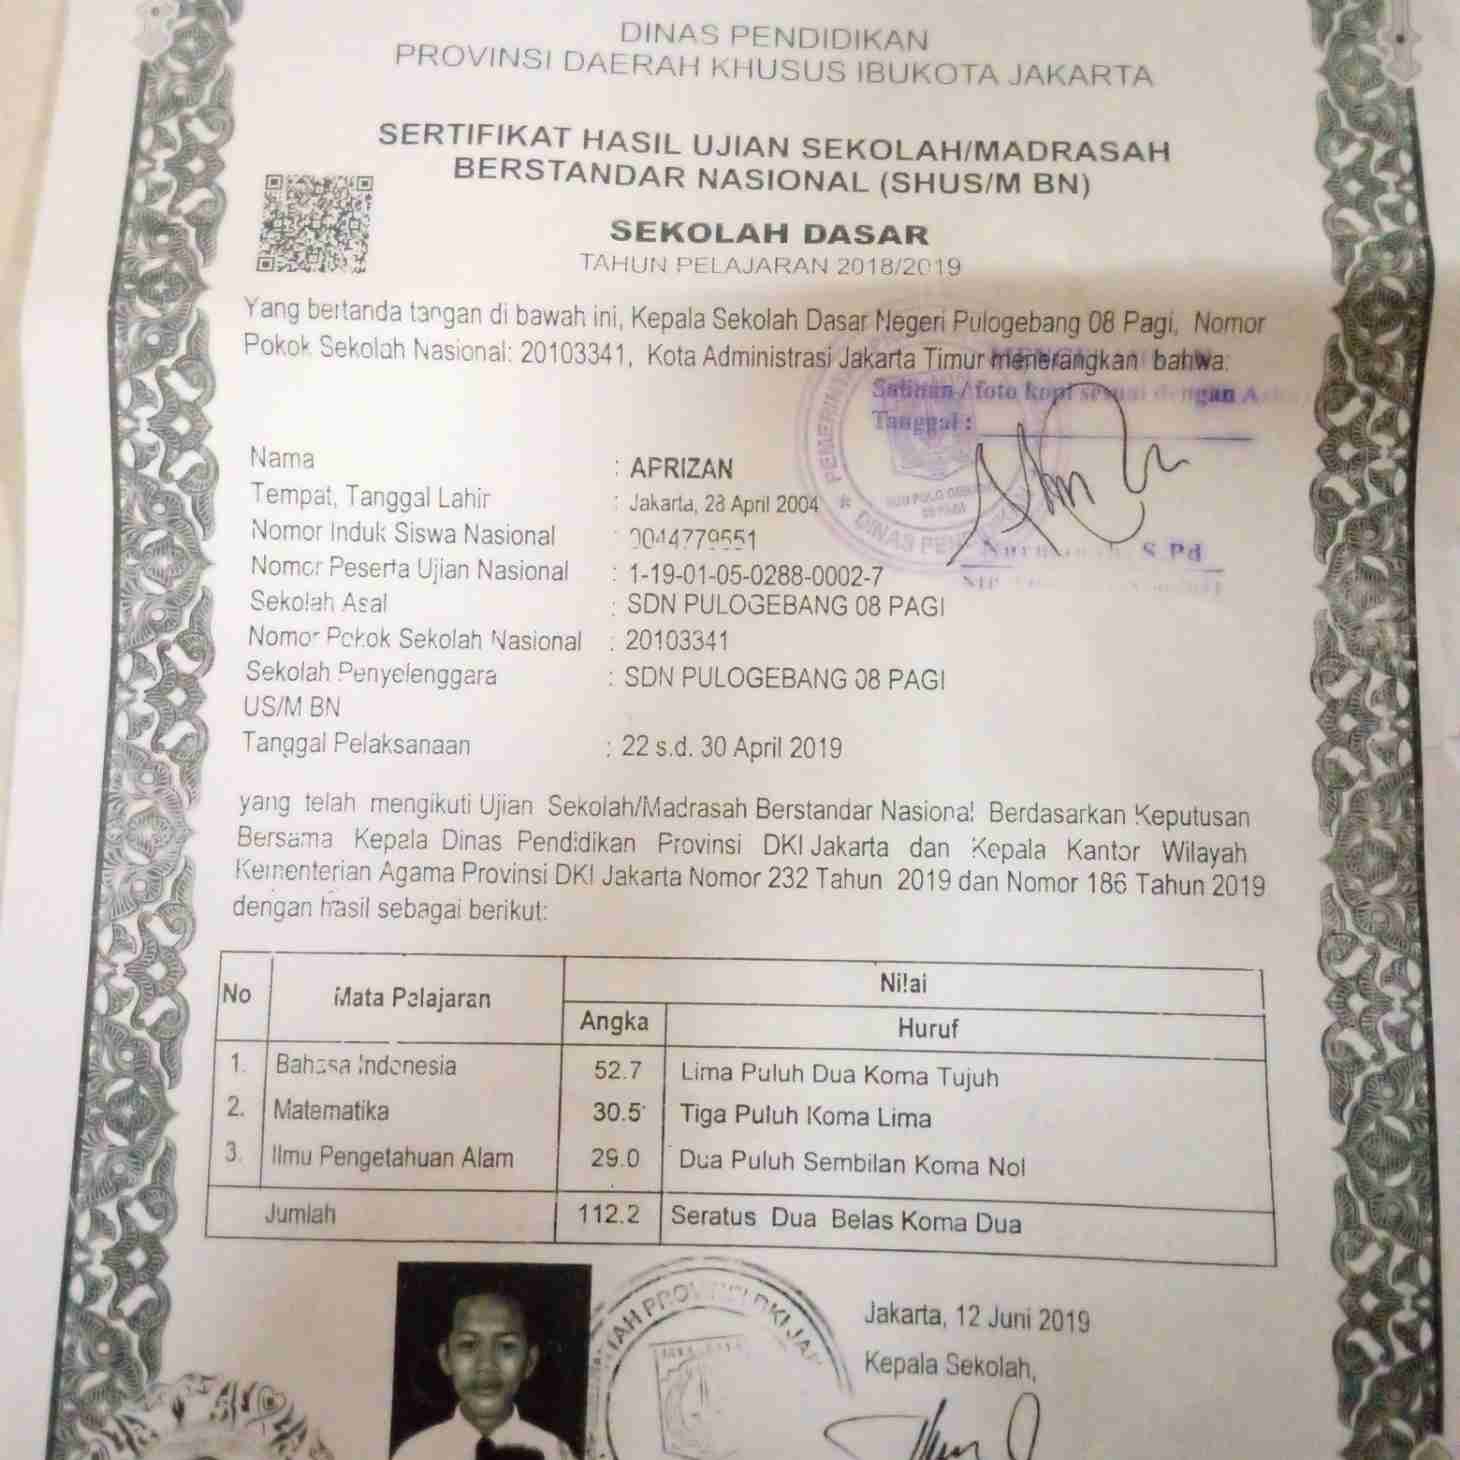 DINAS PENDIDIKAN
PROVINSI DAERAH KHUSUS IBUKOTA JAKARTA
SERTIFIKAT HASIL UJIAN SEKOLAH/MADRASAH
BERSTANDAR NASIONAL (SHUS/M BN)
SEKOLAH DASAR
TAHUN PELAJARAN 2018/2019
Yang bertanda tangan di bawah ini, Kepala Sekolah Dasar Negeri Pulogebang 08 Pagi, Nomor
Pokok Sekolah Nasional: 20103341, Kota Administrasi Jakarta Timur menerangkan bahwa:
Salinan / foto kopi sesuai dengan
Tanggal :
Nama : AFRIZAN
Tempat, Tanggal Lahir : Jakarta, 28 April 2004
Nomor Induk Siswa Nasional : 0044779551
Nomor Peserta Ujian Nasional : 1-19-01-05-0288-0002-7
Sekolah Asal : SDN PULOGEBANG 08 PAGI
Nomor Pokok Sekolah Nasional : 20103341
Sekolah Penyelenggara : SDN PULOGEBANG 08 PAGI
US/M BN
Tanggal Pelaksanaan : 22 s.d. 30 April 2019
S.Pd
NIP
yang telah mengikuti Ujian Sekolah/Madrasah Berstandar Nasional Berdasarkan Keputusan
Bersama Kepala Dinas Pendidikan Provinsi DKI Jakarta dan Kepala Kantor Wilayah
Kementerian Agama Provinsi DKI Jakarta Nomor 232 Tahun 2019 dan Nomor 186 Tahun 2019
dengan hasil sebagai berikut:
No Mata Pelajaran Nilai
Angka Huruf
1. Bahasa Indonesia 52.7 Lima Puluh Dua Koma Tujuh
2. Matematika 30.5 Tiga Puluh Koma Lima
3. Ilmu Pengetahuan Alam 29.0 Dua Puluh Sembilan Koma Nol
Jumlah 112.2 Seratus Dua Belas Koma Dua
Jakarta, 12 Juni 2019
Kepala Sekolah,